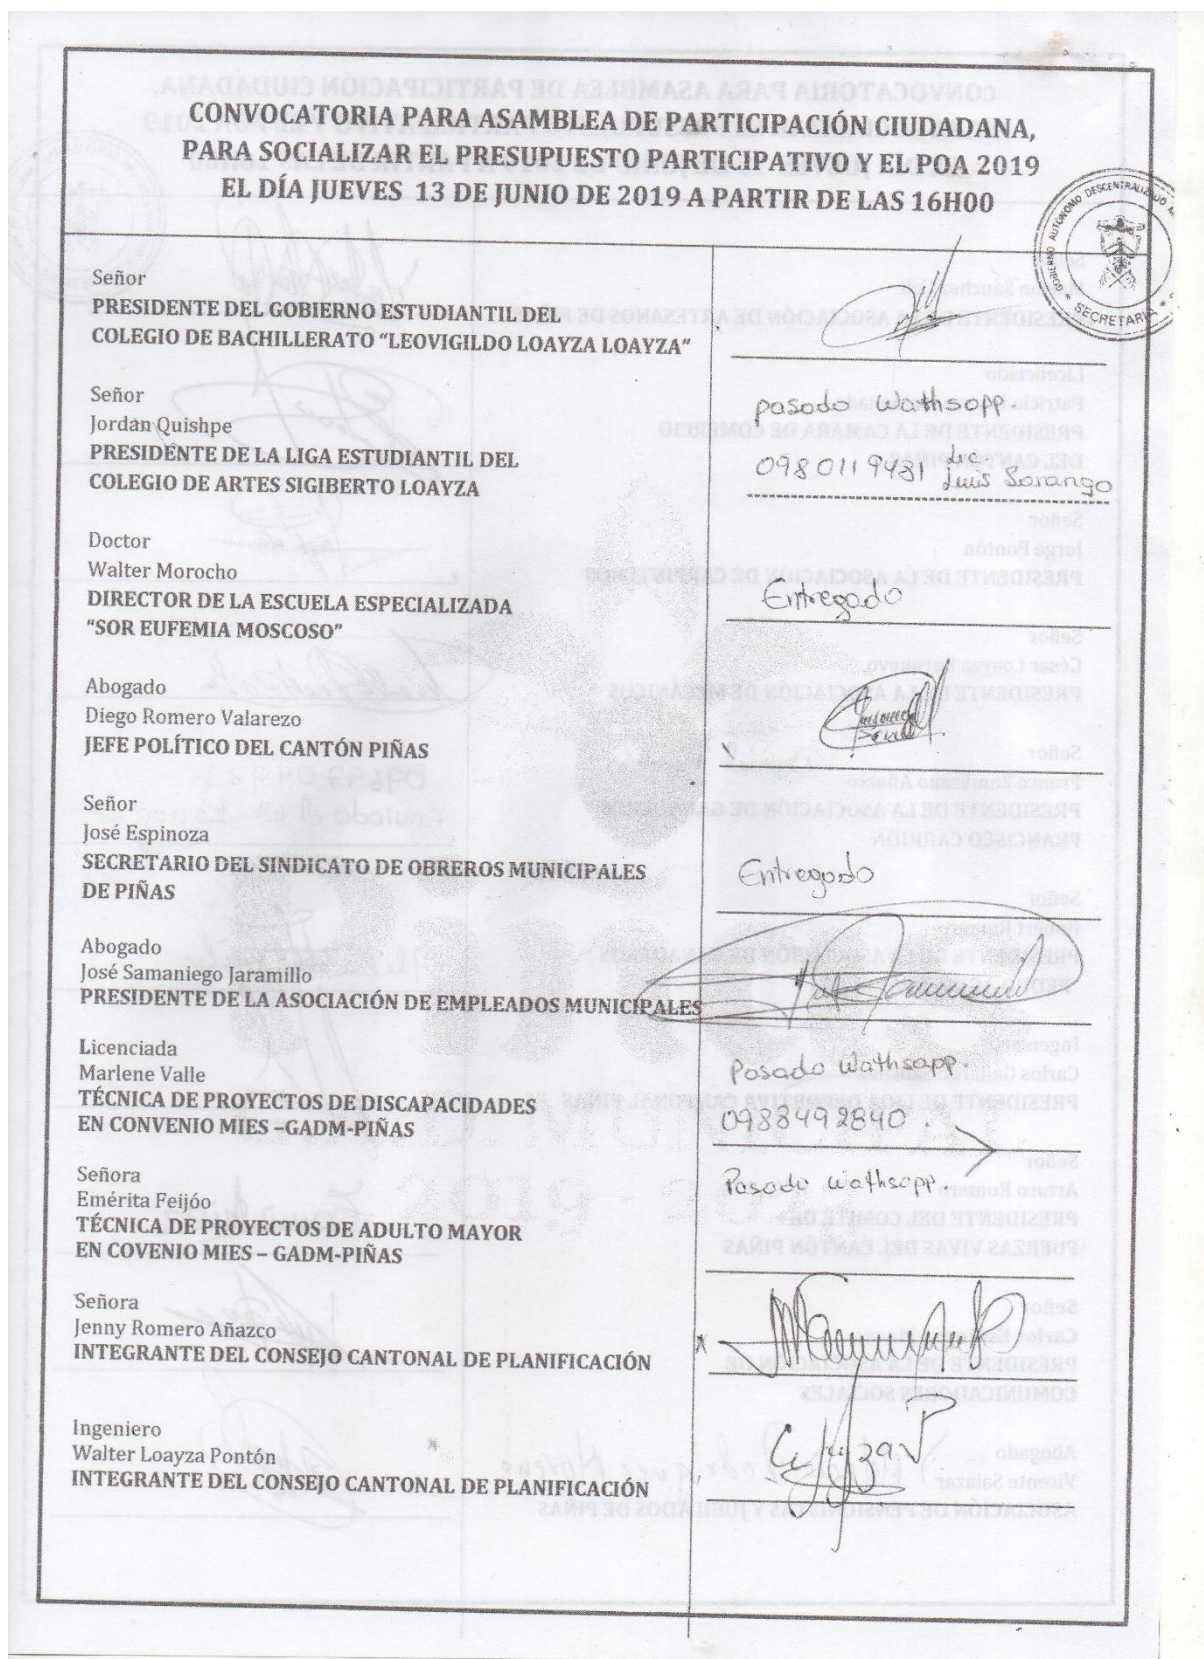 CONVOCATORIA PARA ASAMBLEA DE PARTICIPACIÓN CIUDADANA,
PARA SOCIALIZAR EL PRESUPUESTO PARTICIPATIVO Y EL POA 2019
EL DÍA JUEVES 13 DE JUNIO DE 2019 A PARTIR DE LAS 16H00
GOBIERNO AUTÓNOMO DESCENTRALIZADO
SECRETARIA
Señor
PRESIDENTE DEL GOBIERNO ESTUDIANTIL DEL
COLEGIO DE BACHILLERATO “LEOVIGILDO LOAYZA LOAYZA”
Señor
Jordan Quishpe
PRESIDENTE DE LA LIGA ESTUDIANTIL DEL
COLEGIO DE ARTES SIGIBERTO LOAYZA
pasado Wathsapp.
0980119431 Lic
Luis Sarango
Doctor
Walter Morocho
DIRECTOR DE LA ESCUELA ESPECIALIZADA
“SOR EUFEMIA MOSCOSO”
Entregado
Abogado
Diego Romero Valarezo
JEFE POLÍTICO DEL CANTÓN PIÑAS
Señor
José Espinoza
SECRETARIO DEL SINDICATO DE OBREROS MUNICIPALES
DE PIÑAS
Entregado
Abogado
José Samaniego Jaramillo
PRESIDENTE DE LA ASOCIACIÓN DE EMPLEADOS MUNICIPALES
Licenciada
Marlene Valle
TÉCNICA DE PROYECTOS DE DISCAPACIDADES
EN CONVENIO MIES –GADM-PIÑAS
Pasado Wathsapp.
0983492840.
Señora
Emérita Feijóo
TÉCNICA DE PROYECTOS DE ADULTO MAYOR
EN COVENIO MIES – GADM-PIÑAS
Pasado wathsapp.
Señora
Jenny Romero Añazco
INTEGRANTE DEL CONSEJO CANTONAL DE PLANIFICACIÓN
Ingeniero
Walter Loayza Pontón
INTEGRANTE DEL CONSEJO CANTONAL DE PLANIFICACIÓN